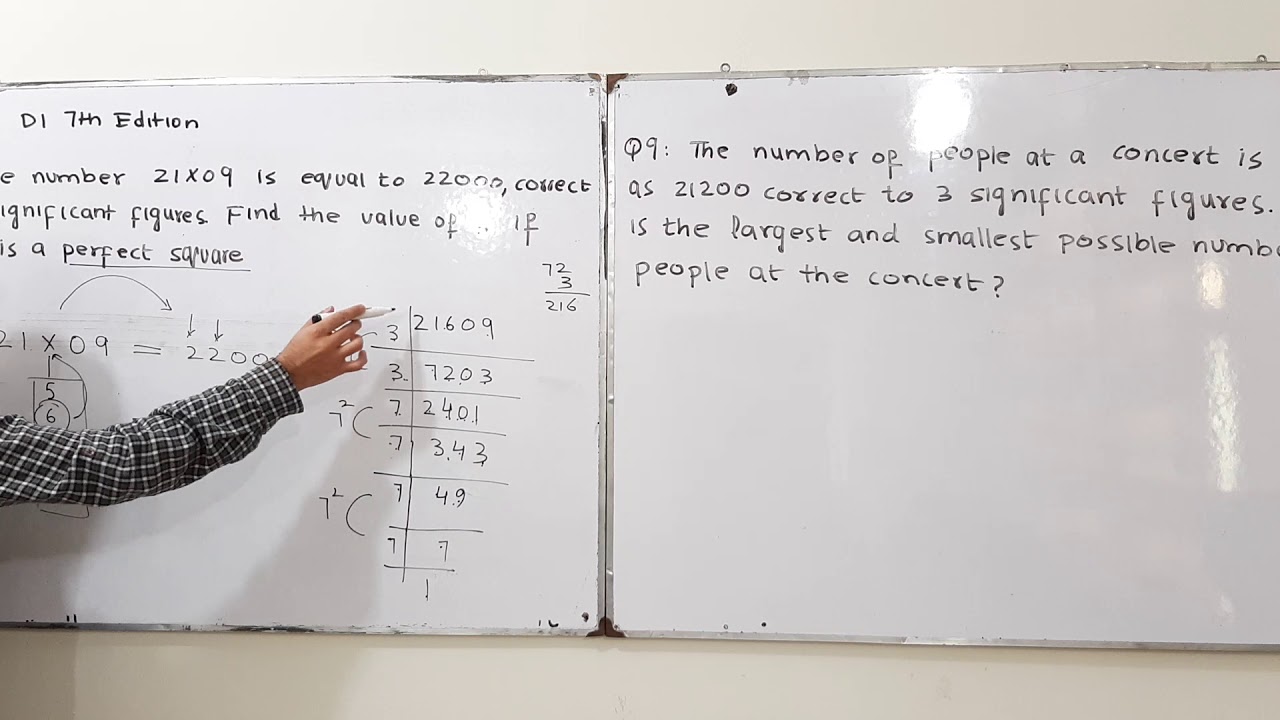 D1 7th Edition
e number 21X09 is equal to 22000, correct
ignificant figures. Find the value of .. if
is a perfect square
21 X 09 = 2200
5
6
72
3
216
3 21609
3 7203
7 2401
7 343
7 49
7 7
1
7²
7²
Q9: The number of people at a concert is
as 21200 correct to 3 significant figures.
is the largest and smallest possible numb
people at the concert?